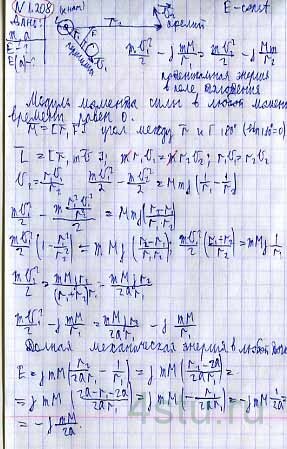 N 1.208) E-const
Дано:
m, a
E - ?
E(a) - ?
r₂
афелий
υ₂
mυ₁²/2 - γ mM/r₁ = mυ₂²/2 - γ Mm/r₂
потенциальная энергия
в поле тяготения
Модуль момента силы в любой момент
времени равен 0.
M̄ = [r̄, F̄] угол между r̄ и F 180° (sin 180° = 0)
L̄ = [r̄, mῡ]; m r₁υ₁ = m r₂υ₂; r₁υ₁ = r₂υ₂
υ₂ = r₁υ₁/r₂ mυ₁²/2 - mυ₂²/2 = Mmγ(1/r₁ - 1/r₂)
mυ₁²/2 - m r₁²υ₁²/2r₂² = Mmγ(r₂-r₁/r₁r₂)
mυ₁²/2 (1 - r₁²/r₂²) = mMγ(r₂-r₁/r₁r₂); mυ₁²/2 (r₁+r₂/r₂) = mMγ 1/r₁
mυ₁²/2 = mMγr₂/(r₁+r₂)r₁ = mMγr₂/2ar₁
mυ₁²/2 - γ mM/r₁ = mMγr₂/2ar₁ - γ mM/r₁
Полная механическая энергия в любой точке
E = γmM(r₂/2ar₁ - 1/r₁) = γmM(r₂-2a/2ar₁) =
= γmM(2a-r₁-2a/2ar₁) = γmM(-r₁/2ar₁) = -γmM 1/2a =
= -γ mM/2a.
4stu.ru